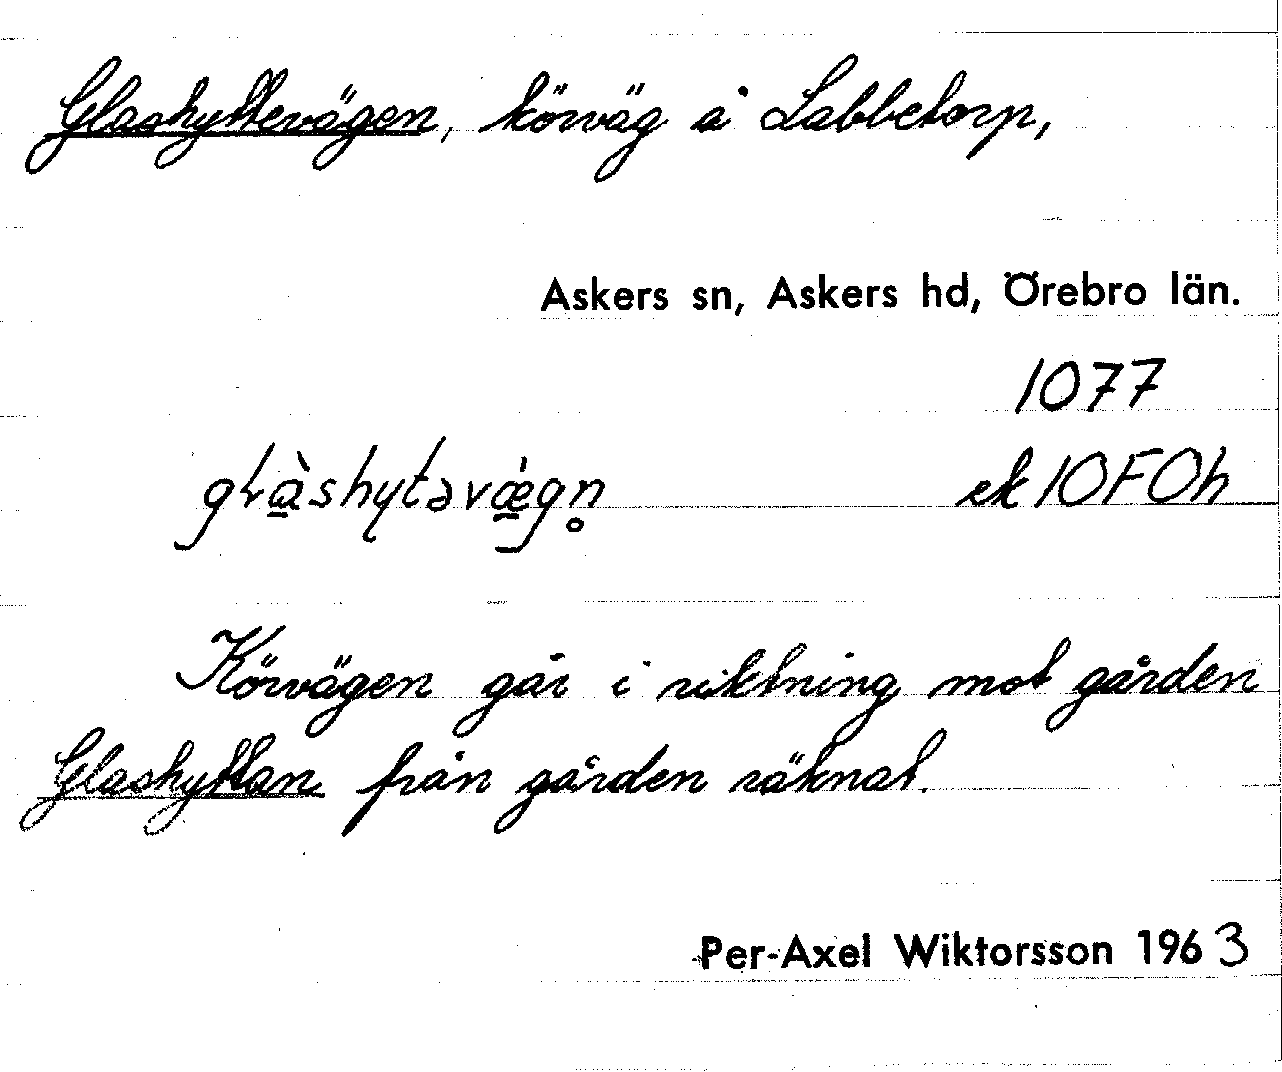 Glashyttevägen, körväg å Labbetorp,
Askers sn, Askers hd, Örebro län.
1077
glàshytəvæ̀gn̥ ek 10F0h
Körvägen går i riktning mot gården
Glashyttan från gården räknat.
Per-Axel Wiktorsson 1963